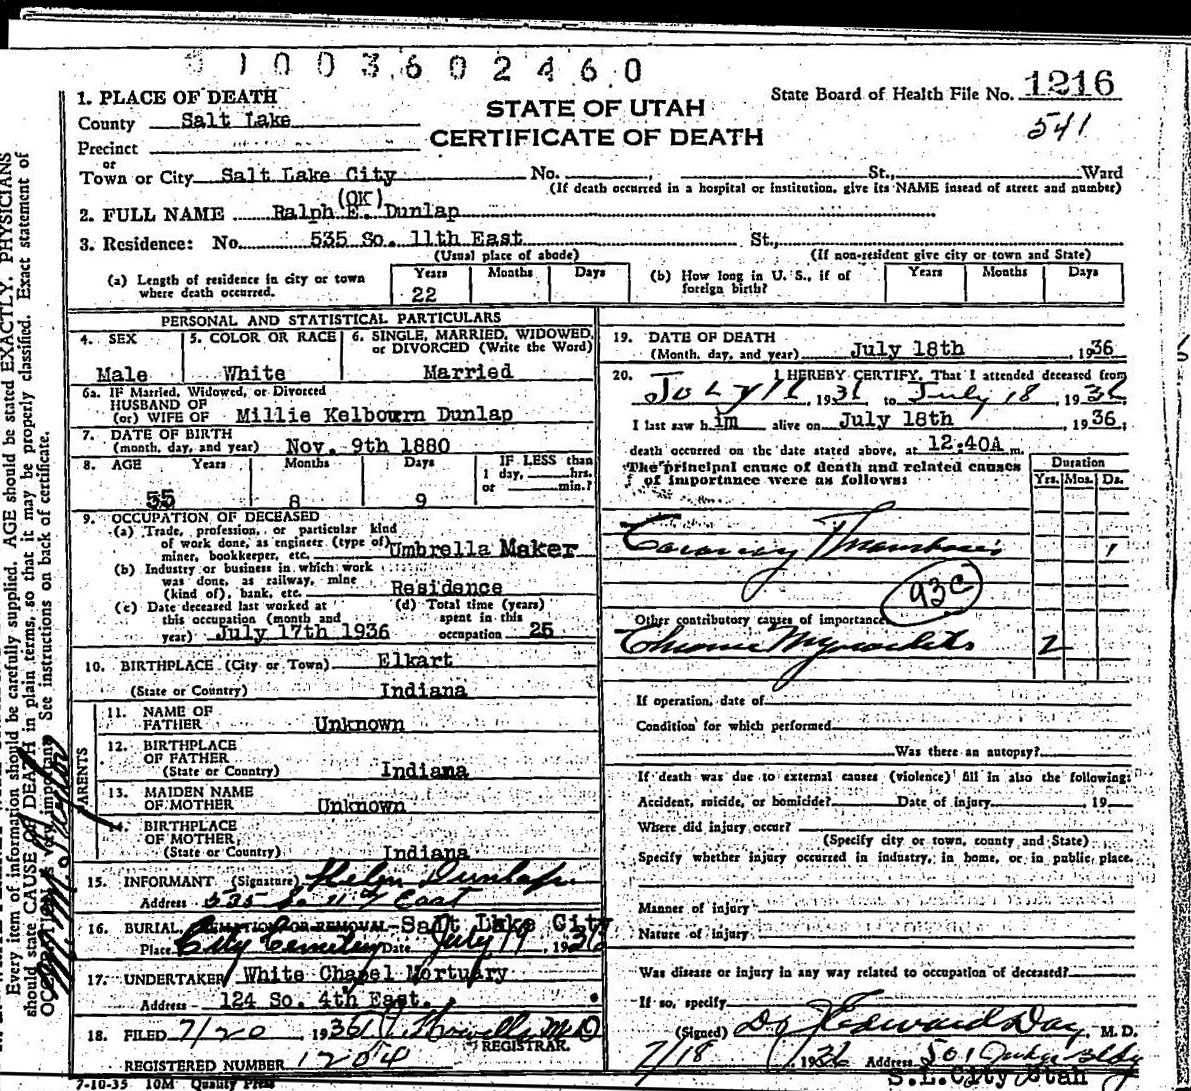 01003602460
1. PLACE OF DEATH
County Salt Lake
Precinct
or
Town or City Salt Lake City No. St., Ward
(If death occurred in a hospital or institution, give its NAME insead of street and number)
STATE OF UTAH
CERTIFICATE OF DEATH
State Board of Health File No. 1216
541
(OK)
2. FULL NAME Ralph E. Dunlap
3. Residence: No. 535 So. 11th East St.,
(Usual place of abode) (If non-resident give city or town and State)
(a) Length of residence in city or town where death occurred. Years Months Days
22
(b) How long in U. S., if of foreign birth? Years Months Days
PERSONAL AND STATISTICAL PARTICULARS
4. SEX 5. COLOR OR RACE 6. SINGLE, MARRIED, WIDOWED, or DIVORCED (Write the Word)
Male White Married
6a. IF Married, Widowed, or Divorced
HUSBAND OF
(or) WIFE OF Millie Kelbourn Dunlap
7. DATE OF BIRTH
(month, day, and year) Nov. 9th 1880
8. AGE Years Months Days IF LESS than
1 day, hrs.
or min.?
55 8 9
9. OCCUPATION OF DECEASED
(a) Trade, profession, or particular kind
of work done, as engineer (type of)
miner, bookkeeper, etc. Umbrella Maker
(b) Industry or business in which work
was done, as railway, mine
(kind of), bank, etc. Residence
(c) Date deceased last worked at (d) Total time (years)
this occupation (month and spent in this
year) July 17th 1936 occupation 25
10. BIRTHPLACE (City or Town) Elkart
(State or Country) Indiana
PARENTS
11. NAME OF
FATHER Unknown
12. BIRTHPLACE
OF FATHER
(State or Country) Indiana
13. MAIDEN NAME
OF MOTHER Unknown
14. BIRTHPLACE
OF MOTHER,
(State or Country) Indiana
15. INFORMANT (Signature) Helen Dunlap
Address 535 So 11th East
16. BURIAL, CREMATION OR REMOVAL Salt Lake City
Place City Cemetery Date July 19, 1936
17. UNDERTAKER White Chapel Mortuary
Address 124 So. 4th East.
18. FILED 7/20 1936 Howells M D
REGISTRAR.
REGISTERED NUMBER 1204
7-10-35 10M Quality Press
19. DATE OF DEATH
(Month, day, and year) July 18th, 1936
20. I HEREBY CERTIFY, That I attended deceased from
July 1936 to July 18, 1936
I last saw him alive on July 18th, 1936;
death occurred on the date stated above, at 12:40A m.
The principal cause of death and related causes
of importance were as follows:
Duration
Yrs. Mos. Ds.
Coronary Thrombosis 1
93c
Other contributory causes of importance
Chronic Myocarditis 2
If operation, date of
Condition for which performed
Was there an autopsy?
If death was due to external causes (violence) fill in also the following:
Accident, suicide, or homicide? Date of injury , 19
Where did injury occur?
(Specify city or town, county and State)
Specify whether injury occurred in industry, in home, or in public place.
Manner of injury
Nature of injury
Was disease or injury in any way related to occupation of deceased?
If so, specify
(Signed) Dr J Edward Day, M. D.
7/18 1936 Address 501 Bldg
S.L.City Utah
Every item of information should be carefully supplied. AGE should be stated EXACTLY. PHYSICIANS
should state CAUSE OF DEATH in plain terms, so that it may be properly classified. Exact statement of
OCCUPATION is very important. See instructions on back of certificate.